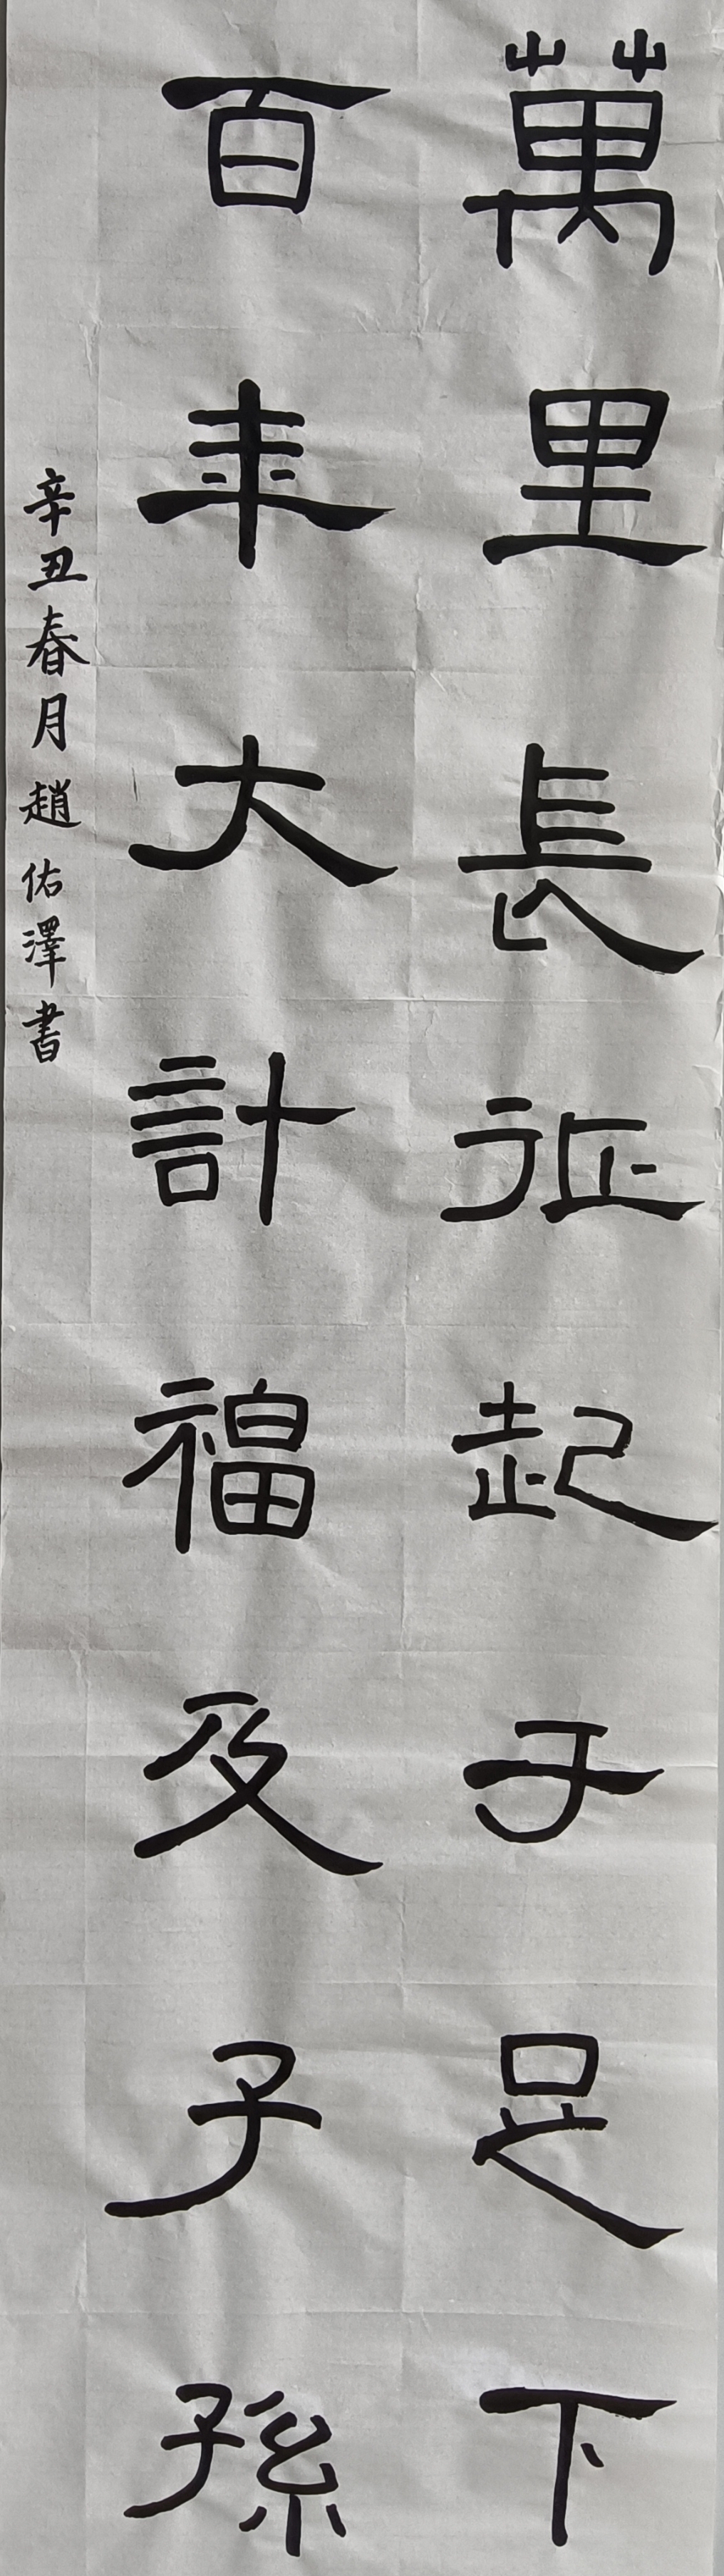 萬里長征起于足下
百年大計福及子孫
辛丑春月趙佑澤書